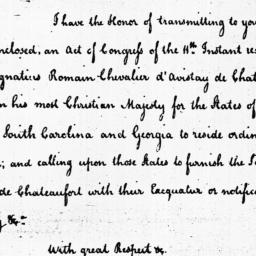 I have the Honor of transmitting to yo
nclosed, an Act of Congress of the 4th Instant re
gnatius Romain Chevalier d'Avistay de Chat
m his most Christian Majesty for the States of
South Carolina and Georgia to reside ordin
; and calling upon those States to furnish the S
de Chateaufort with their Exequatur or notific
y &c
With great Respect &c.